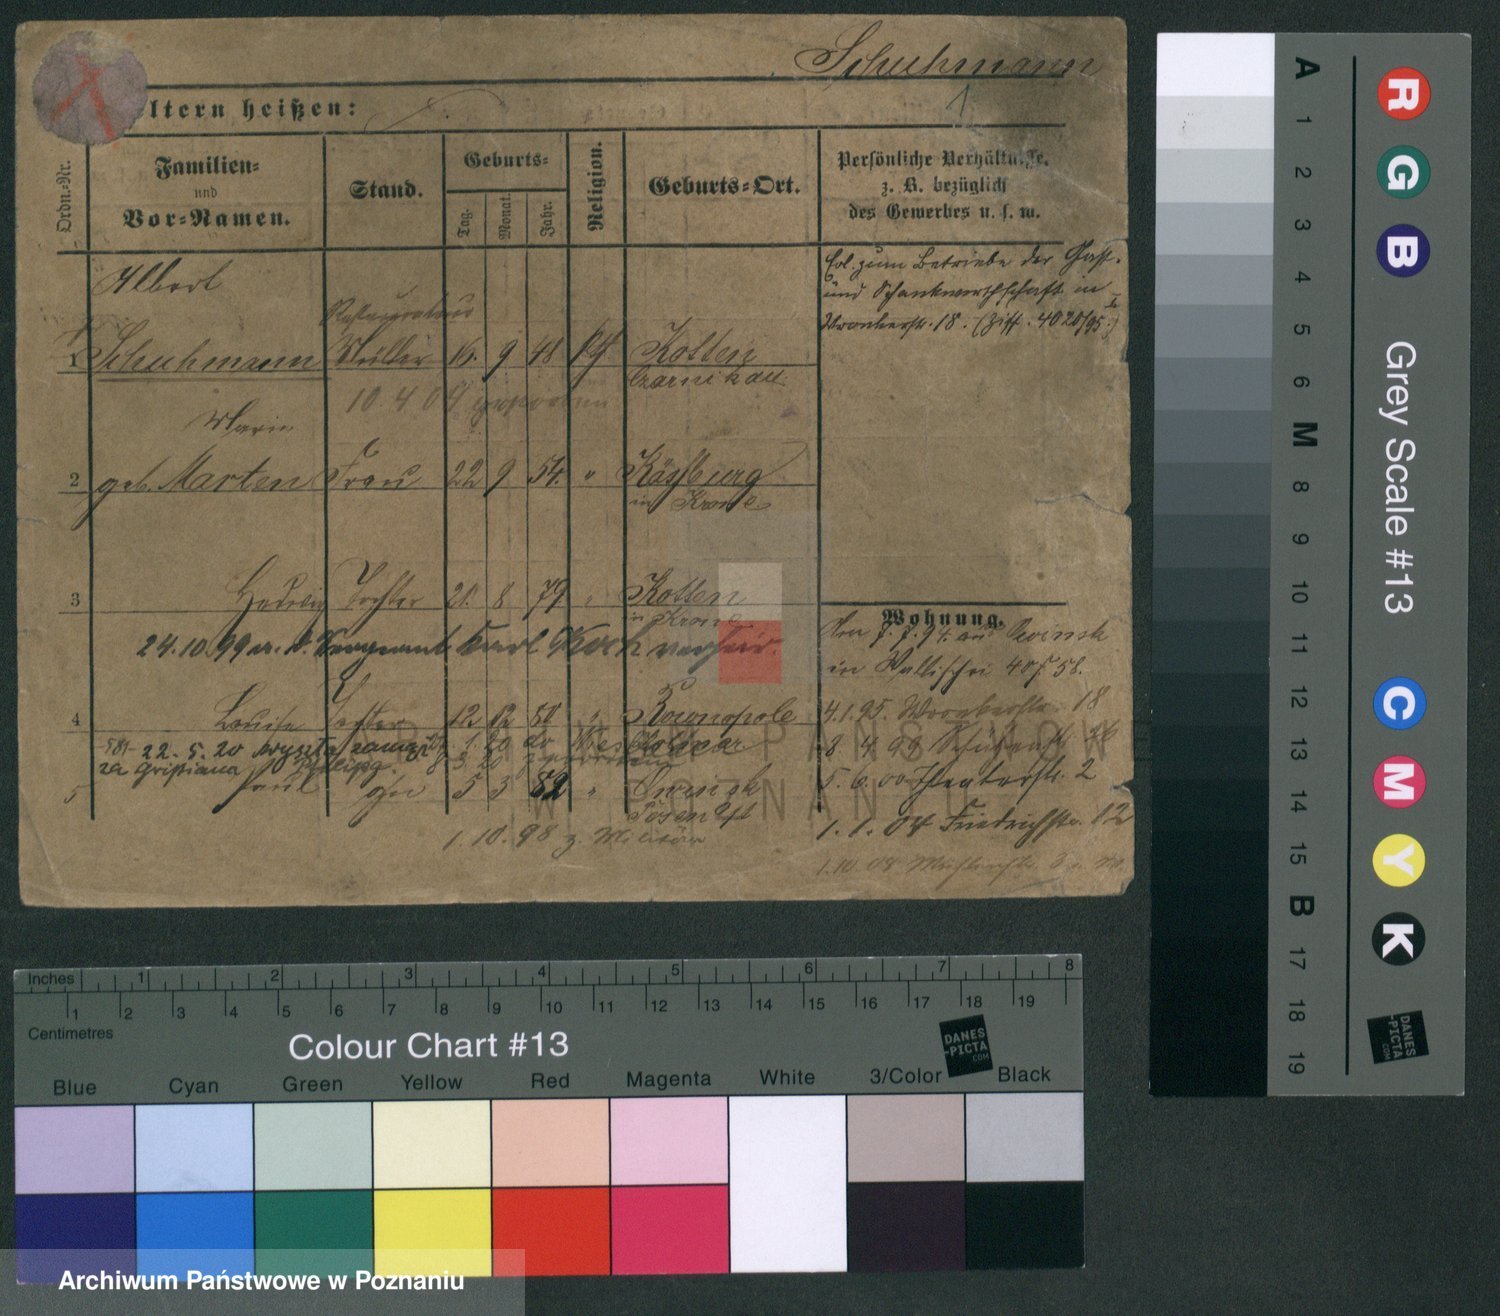 Schuhmann
1
ltern heißen:
Ordn.-Nr.
Familien-
und
Vor-Namen.
Stand.
Geburts-
Tag.
Monat.
Jahr.
Religion.
Geburts-Ort.
Persönliche Verhältnisse,
z. B. bezüglich
des Gewerbes u. s. w.
Erl. zum Betriebe der Gast-
und Schankwirthschaft in
Wronkerstr. 18. (Ziff. 4020/95)
Albert
Restaurateur
1 Schuhmann Müller 16. 9 48 Kotten
Czarnikau
10.4.09 gestorben
Marie
2 geb. Marten Frau 22 9 54. " 
in Krone
3 Hedwig Tochter 21. 8 79 " Kotten
in Krone
24.10.99 Sergeant Karl Koch verheir.
Wohnung.
Den 7.7.94 aus Owinsk
in Wallischei 40/58.
4 Louise Tochter 12 12 Kownopole
4.1.95. Wronkerstr. 18
22. 5. 20
8. 4. 99 Schützenstr.
za
5 Paul 5 3 82 " Owinsk
Posen
5. 6. 00 Theaterstr. 2
1.10.98 z. Militär
1.1.04 Friedrichstr. 12
1.10.08
ARCHIWUM PAŃSTWOWE
W POZNANIU
A 1 2 3 4 5 6 M 8 9 10 11 12 13 14 15 B 17 18 19
Grey Scale #13
R G B C M Y K
DANES
-PICTA
.COM
Inches 1 2 3 4 5 6 7 8
1 2 3 4 5 6 7 8 9 10 11 12 13 14 15 16 17 18 19
Centimetres
Colour Chart #13
DANES
-PICTA
.COM
Blue Cyan Green Yellow Red Magenta White 3/Color Black
Archiwum Państwowe w Poznaniu